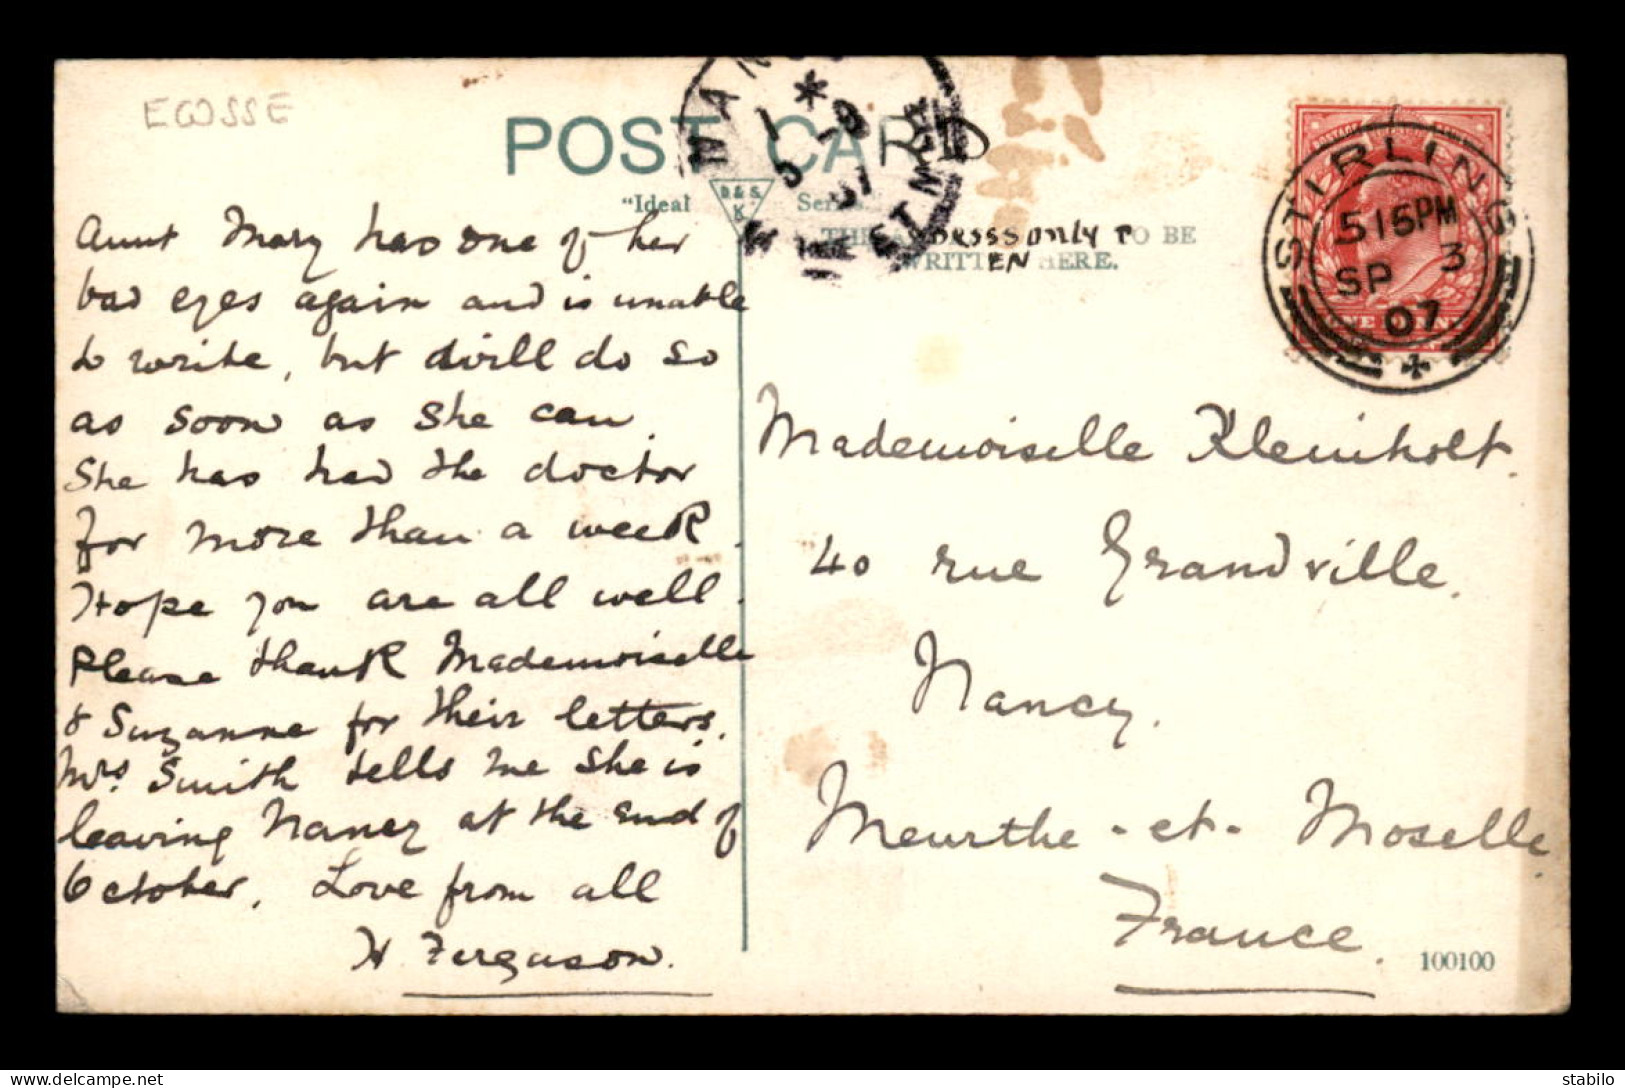 ECOSSE
POST CARD
"Ideal Series"
D & S
K
THE ADDRESS ONLY TO BE
WRITTEN HERE.
NANCY
5 - 9
07
STIRLING
515PM
SP 3
07
ONE PENNY
Aunt Mary has one of her
bad eyes again and is unable
to write, but will do so
as soon as she can.
She has had the doctor
for more than a week.
Hope you are all well.
Please thank Mademoiselle
& Suzanne for their letters.
Mrs. Smith tells me she is
leaving Nancy at the end of
October. Love from all
H. Ferguson.
Mademoiselle Kleinholt.
40 rue Grandville.
Nancy.
Meurthe-et-Moselle.
France.
100100
stabilo
delcampe.net